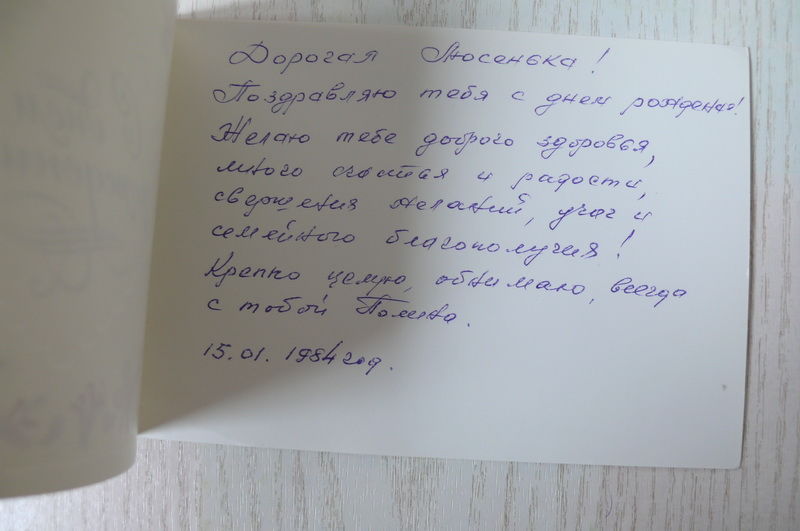 Дорогая Люсенька!
Поздравляю тебя с днем рождения!
Желаю тебе доброго здоровья,
много счастья и радости,
свершения желаний, удач и
семейного благополучия!
Крепко целую, обнимаю, всегда
с тобой Полина.
15.01.1984 год.